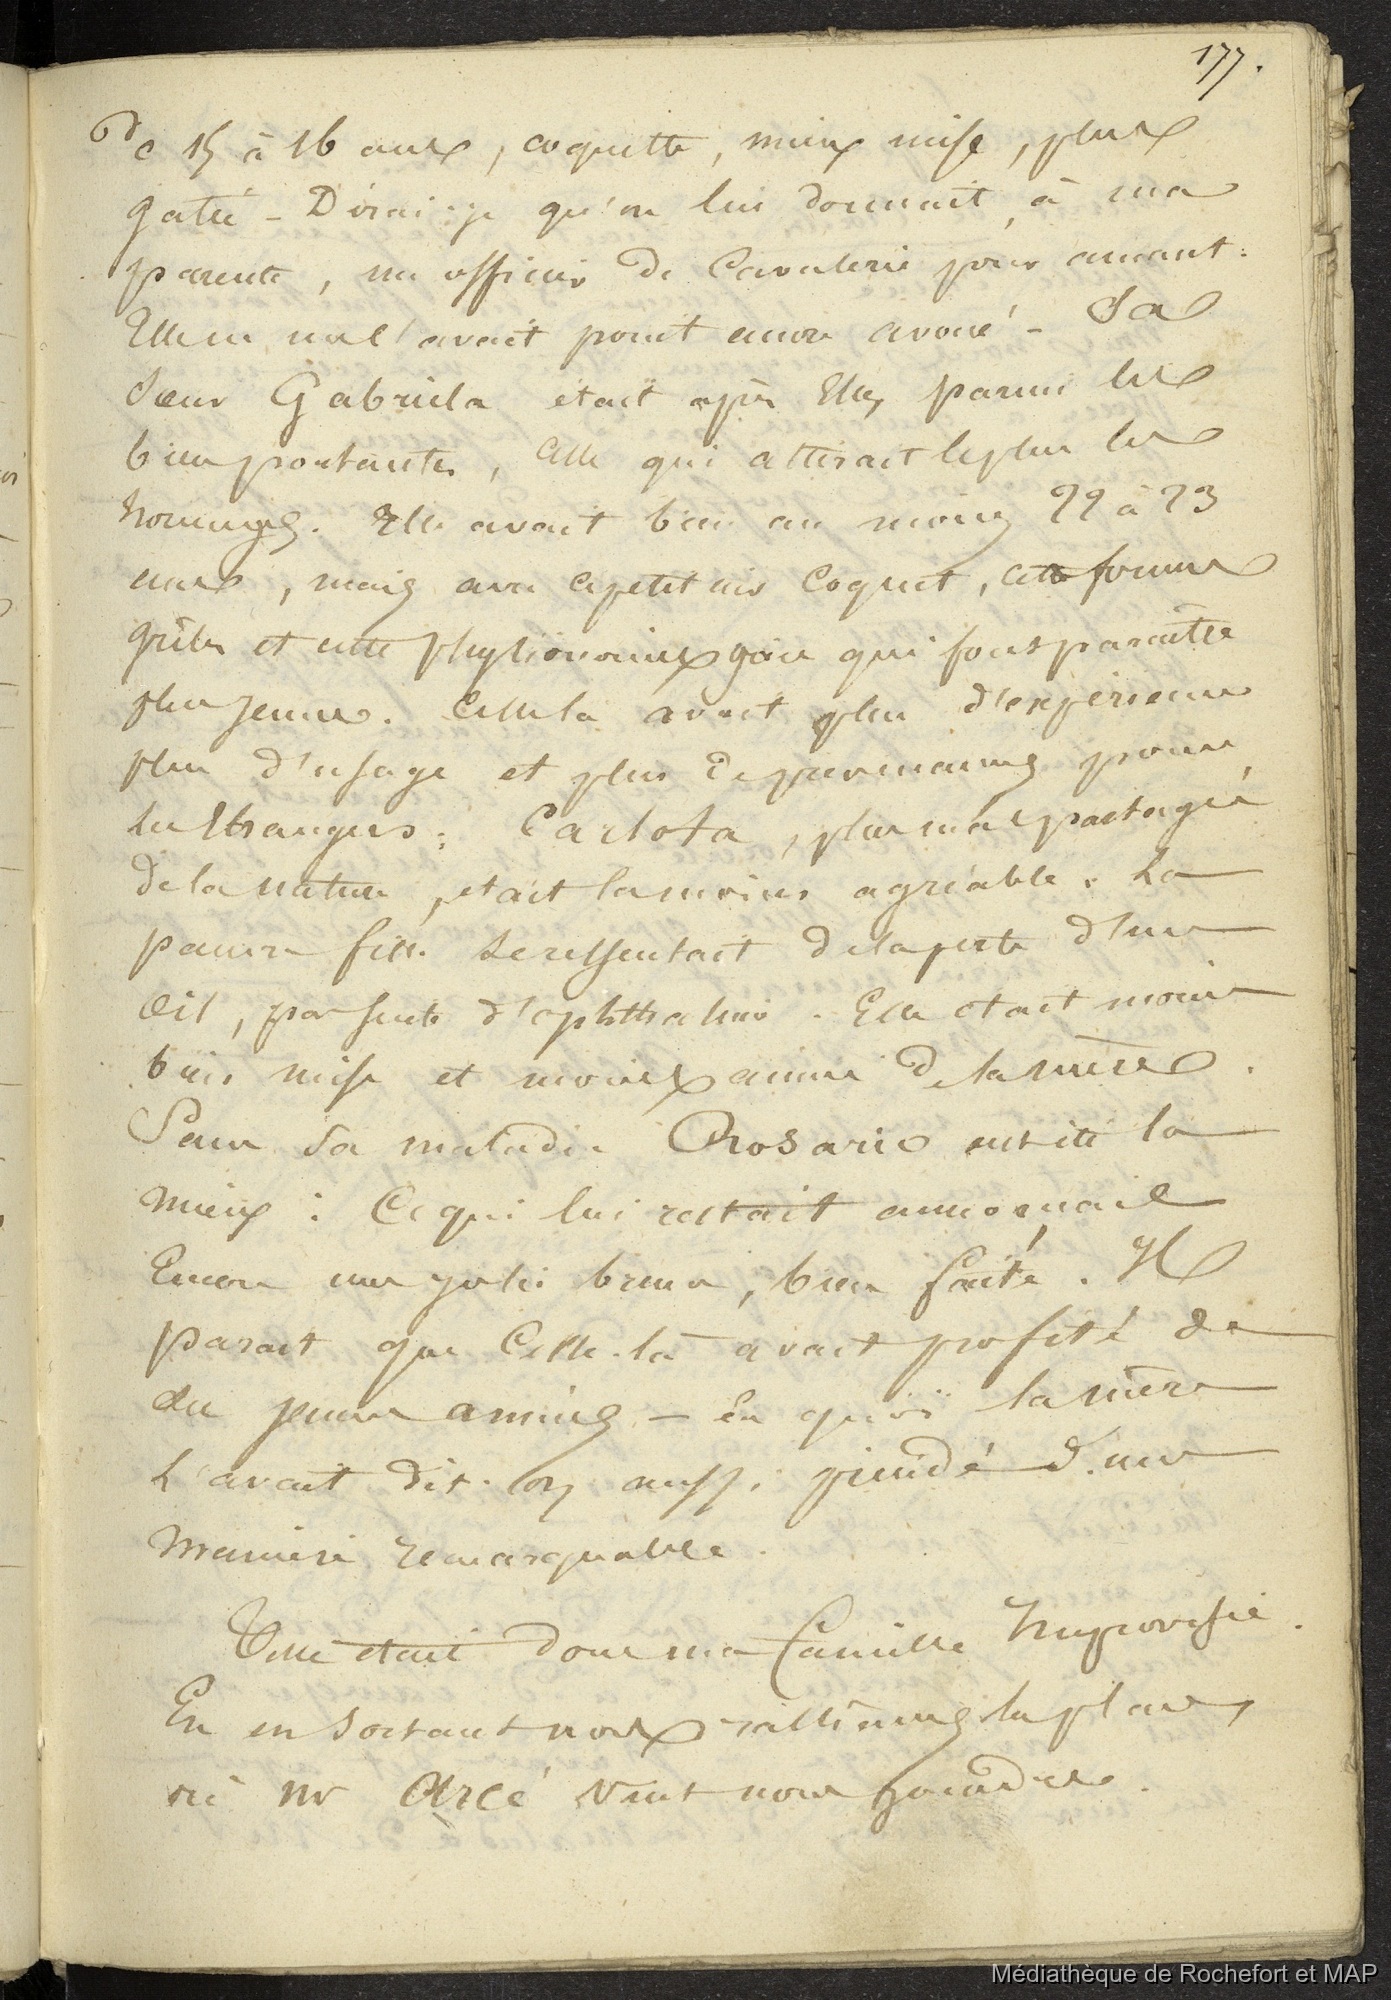 177.
De 15 à 16 ans, coquette, mieux mise, plus
gatée - Dirai-je qu'on lui donnait, à ma
parente, un officier de Cavalerie pour amant:
Elle ne me l'avait point encore avoué - Sa
Soeur Gabriela était après Elle, parmi les
bien portantes, celle qui attirait le plus les
hommes. Elle avait bien au moins 22 à 23
ans, mais avec ce petit air Coquet, cette forme
grêle et cette physionomie gaie qui font paraître
plus jeune. Celle là avait plus d'expérience
plus d'usage et plus de prévenances pour
les Etrangers; Carlota, plus mal partagée
de la nature, était la moins agréable. La
pauvre fille se ressentait de la perte d'un
œil, par suite d'ophtthalmie. Elle était moins
bien mise et moins aimée de la mère.
Sans sa maladie Rosario eut été la
mieux: Ce qui lui restait annonçait
Encore une jolie brune, bien faite. Il
parait que Celle-là avait profité de
ses jeunes années - En quoi la mère
l'avait dit-on aussi guidé d'une
manière remarquable.
Telle était donc ma famille Improvisée.
En en sortant nous ralliâmes la place,
où Mr Arcé vint nous joindre.
Médiathèque de Rochefort et MAP